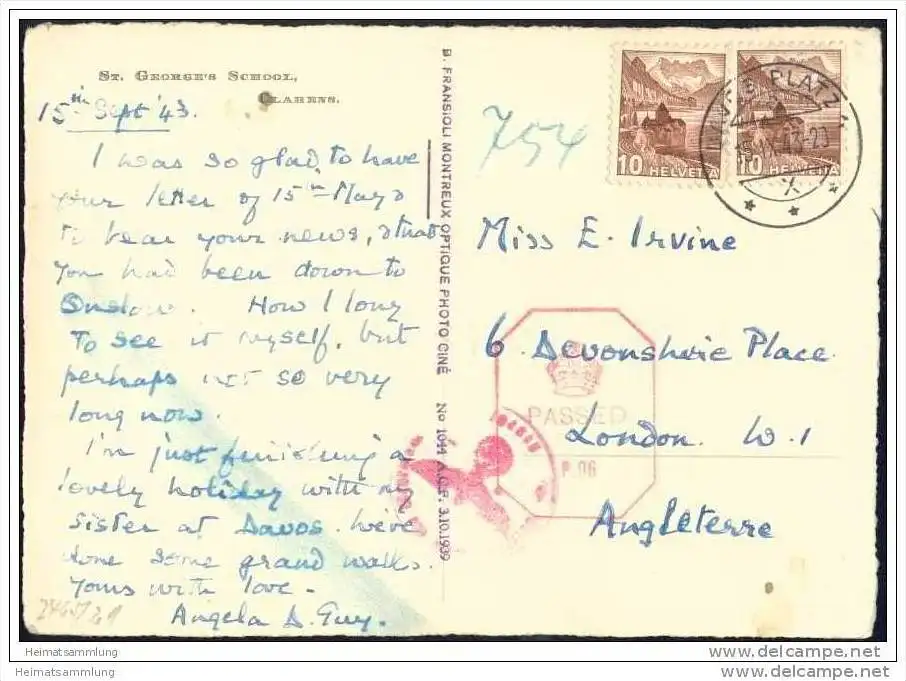 St. George's School,
Clarens.
15th Sept '43.
I was so glad to have
your letter of 15th May &
to hear your news, & that
you had been down to
Onslow. How I long
to see it myself, but
perhaps not so very
long now.
I'm just finishing a
lovely holiday with my
sister at Davos. We've
done some grand walks.
Yours with love.
Angela D. Guy.
B. FRANSIOLI MONTREUX OPTIQUE PHOTO CINÉ No 1044 A.C.F. 3.10.1939
754
10 HELVETIA
10 HELVETIA
PLATZ
15.IX.43-23
Miss E. Irvine
6. Devonshire Place
PASSED
London. W.1
P.96
Angleterre
Heimatsammlung
Heimatsammlung
www.delcampe.net
www.delcampe.net